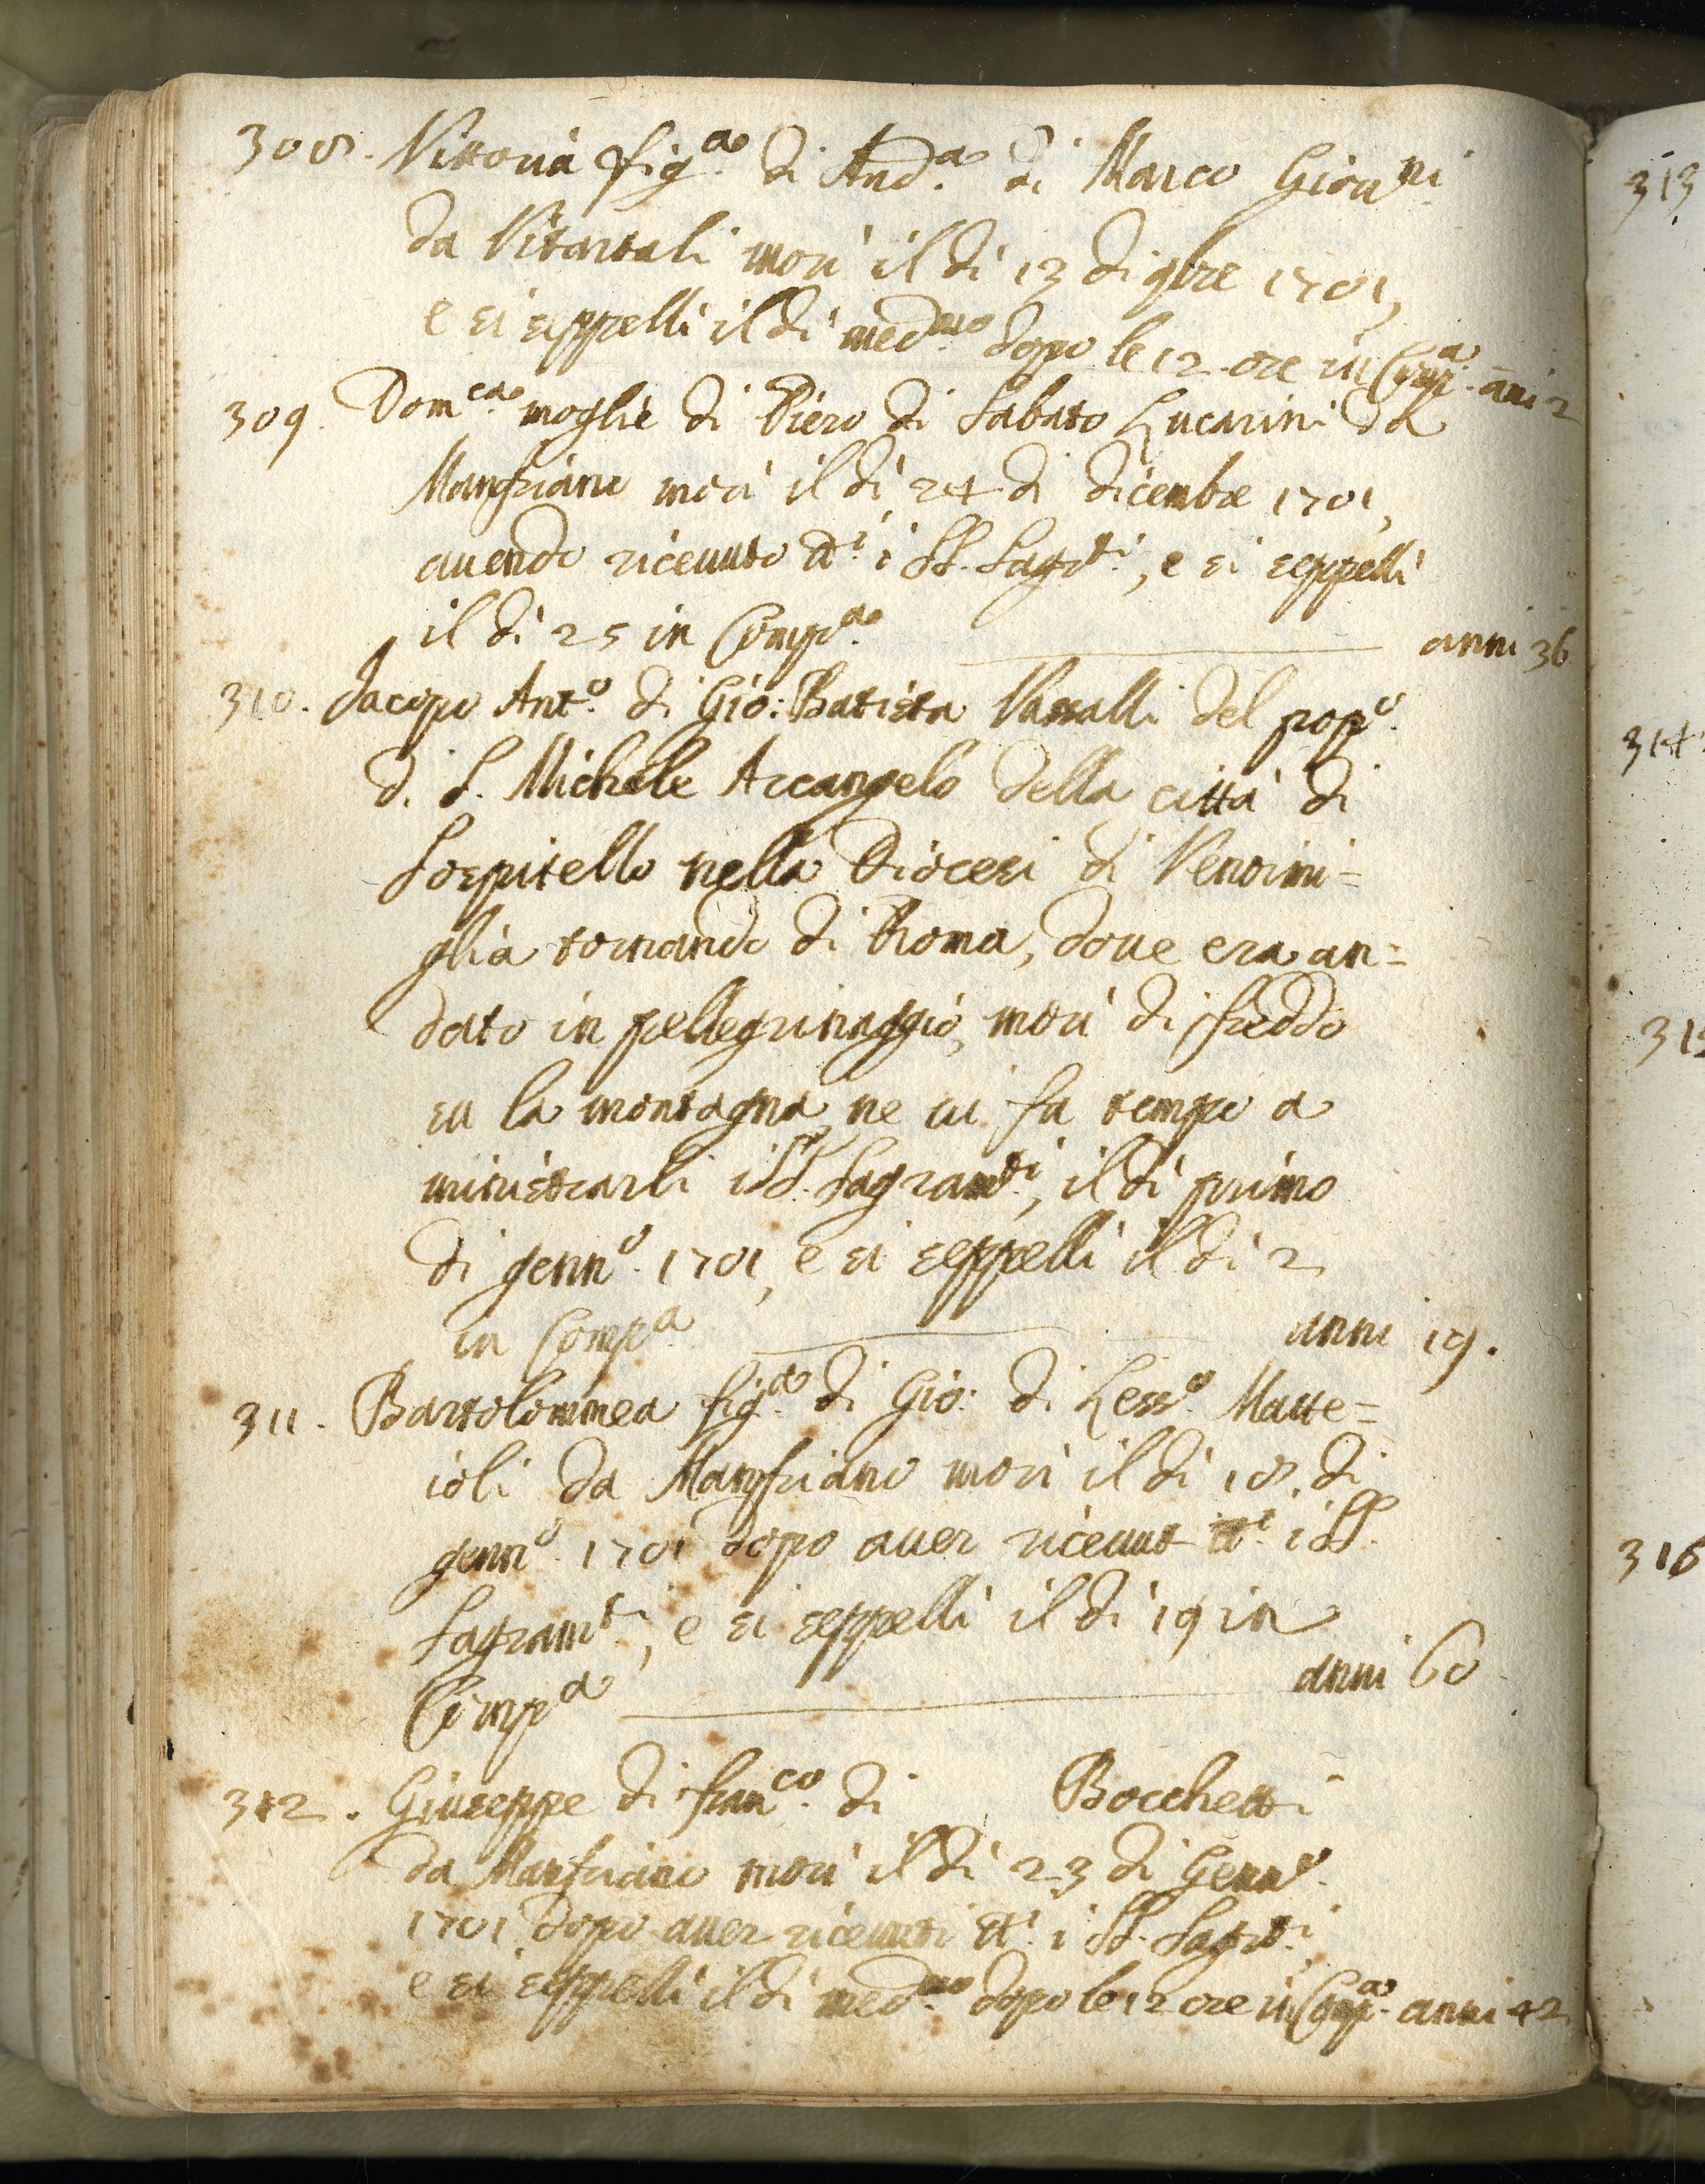 308. Vittoria fig.ª di And.ª di Marco Giouni
da Vitartali morì il dì 13 di 9bre 1701,
e si seppellì il dì med.mo dopo le 12 ore in Comp.ª anni 2
309. Dom.ca moglie di Piero di Sabato Lucarini da
Manfriano morì il dì 24 di dicembre 1701,
auendo riceuuto tt.i i SS. Sagr.ti, e si seppellì
il dì 25 in Comp.ª anni 36
310. Jacopo Ant.º di Gio: Batista Vassalli del pop.º
di S. Michele Arcangelo della città di
Sospitello nella Diocesi di Ventimi=
glia tornando di Roma, doue era an=
dato in pellegrinaggio, morì di freddo
su la montagna, ne ui fu tempo a
ministrarli i SS. Sagram.ti, il dì primo
di genn.º 1701, e si seppellì il dì 2
in Comp.ª anni 19.
311. Bartolommea fig.ª di Gio: di Less.º Matte=
ioli da Manfriano morì il dì 18. di
genn.º 1701 dopo auer riceuut tt.i i SS.
Sagram.ti, e si seppellì il dì 19 in
Comp.ª anni 60
312. Giuseppe di Fran.co di Bocchetti
da Manfriano morì il dì 23 di Genn.º
1701 dopo auer riceuuti tt.i i SS. Sagr.ti
e si seppellì il dì med.mo dopo le 12 ore in Comp.ª anni 42
313
314
315
316